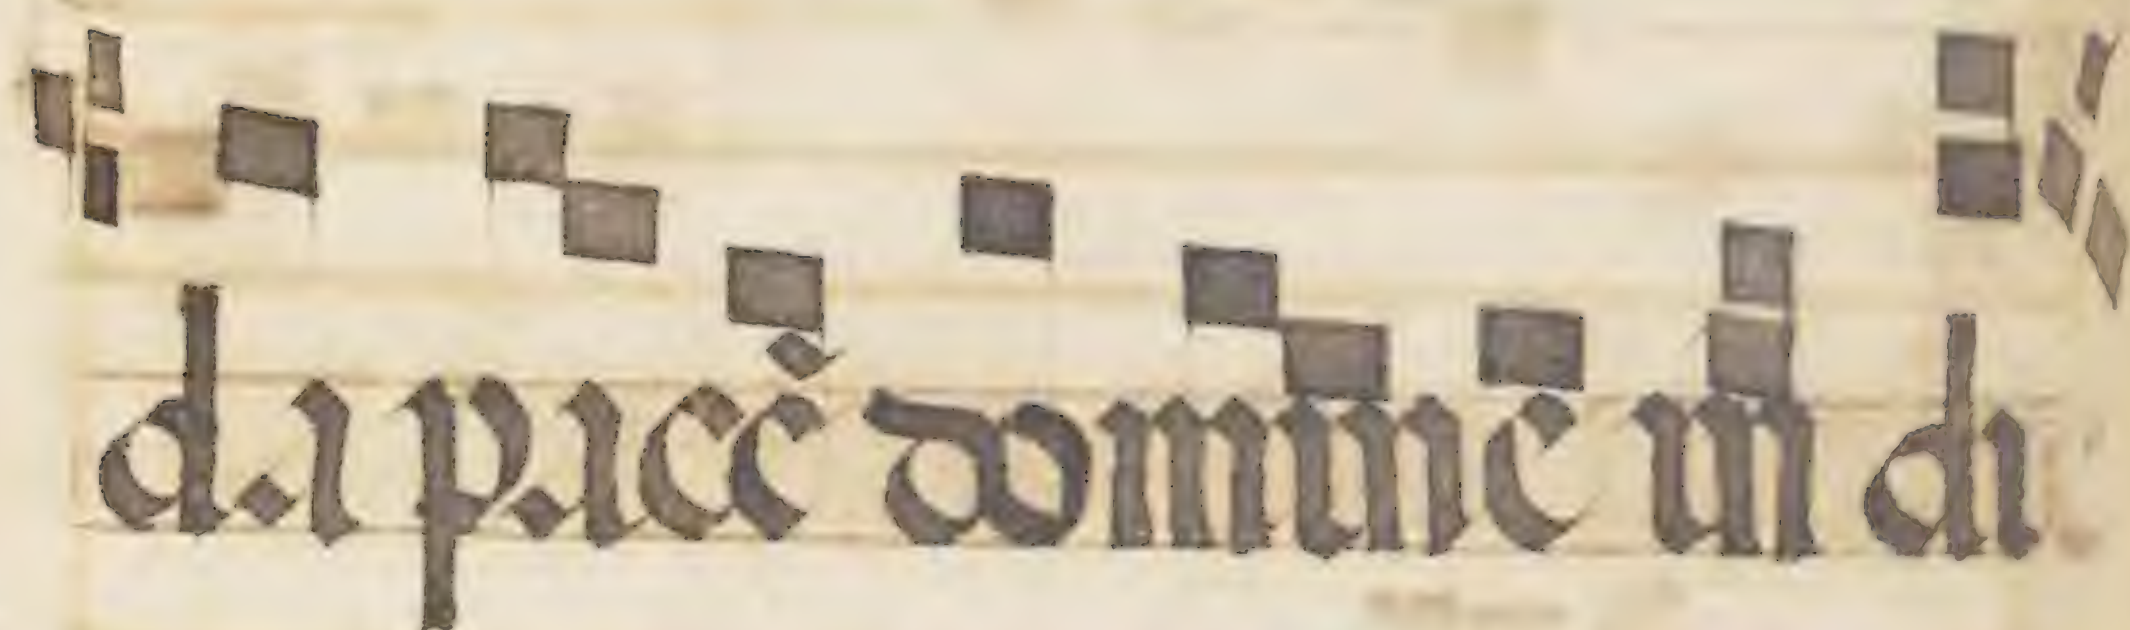 da pacē domine in di